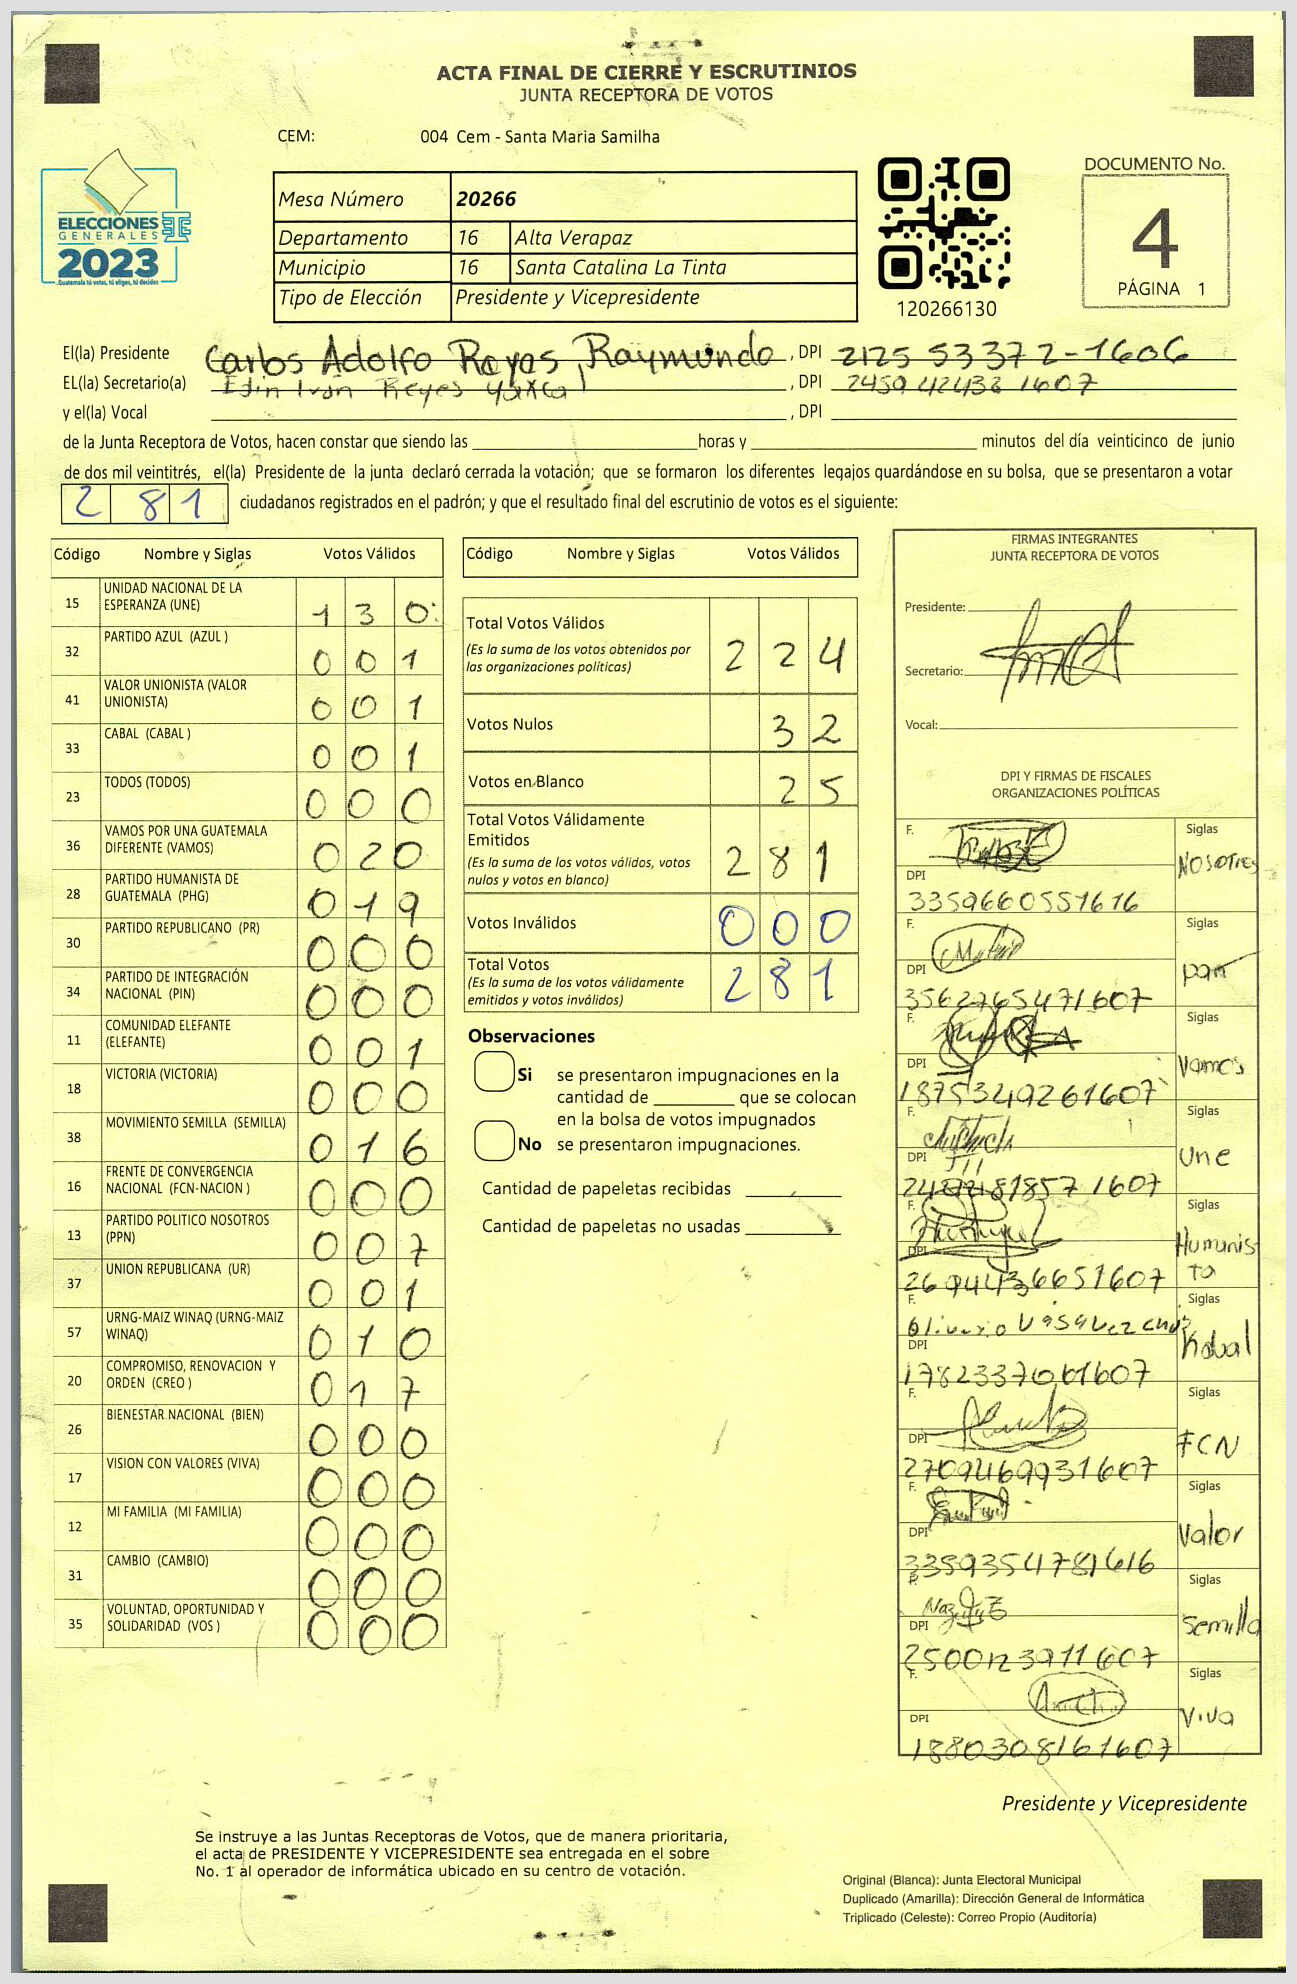 ACTA FINAL DE CIERRE Y ESCRUTINIOS
JUNTA RECEPTORA DE VOTOS
CEM: 004 Cem - Santa Maria Samilha
ELECCIONES
GENERALES
2023
Guatemala tú votas, tú eliges, tú decides
Mesa Número 20266
Departamento 16 Alta Verapaz
Municipio 16 Santa Catalina La Tinta
Tipo de Elección Presidente y Vicepresidente
120266130
DOCUMENTO No.
4
PÁGINA 1
El(la) Presidente Carlos Adolfo Reyes Raymundo, DPI 2125 53372-1606
EL(la) Secretario(a) Edin Iván Reyes Yaxcal, DPI 2459 42438 1607
y el(la) Vocal , DPI
de la Junta Receptora de Votos, hacen constar que siendo las horas y minutos del día veinticinco de junio
de dos mil veintitrés, el(la) Presidente de la junta declaró cerrada la votación; que se formaron los diferentes legajos guardándose en su bolsa, que se presentaron a votar
281 ciudadanos registrados en el padrón; y que el resultado final del escrutinio de votos es el siguiente:
Código Nombre y Siglas Votos Válidos
15 UNIDAD NACIONAL DE LA ESPERANZA (UNE) 130
32 PARTIDO AZUL (AZUL ) 001
41 VALOR UNIONISTA (VALOR UNIONISTA) 001
33 CABAL (CABAL ) 001
23 TODOS (TODOS) 000
36 VAMOS POR UNA GUATEMALA DIFERENTE (VAMOS) 020
28 PARTIDO HUMANISTA DE GUATEMALA (PHG) 019
30 PARTIDO REPUBLICANO (PR) 000
34 PARTIDO DE INTEGRACIÓN NACIONAL (PIN) 000
11 COMUNIDAD ELEFANTE (ELEFANTE) 001
18 VICTORIA (VICTORIA) 000
38 MOVIMIENTO SEMILLA (SEMILLA) 016
16 FRENTE DE CONVERGENCIA NACIONAL (FCN-NACION ) 000
13 PARTIDO POLITICO NOSOTROS (PPN) 007
37 UNION REPUBLICANA (UR) 001
57 URNG-MAIZ WINAQ (URNG-MAIZ WINAQ) 010
20 COMPROMISO, RENOVACION Y ORDEN (CREO ) 017
26 BIENESTAR NACIONAL (BIEN) 000
17 VISION CON VALORES (VIVA) 000
12 MI FAMILIA (MI FAMILIA) 000
31 CAMBIO (CAMBIO) 000
35 VOLUNTAD, OPORTUNIDAD Y SOLIDARIDAD (VOS ) 000
Código Nombre y Siglas Votos Válidos
Total Votos Válidos 224
(Es la suma de los votos obtenidos por
las organizaciones políticas)
Votos Nulos 32
Votos en Blanco 25
Total Votos Válidamente
Emitidos 281
(Es la suma de los votos válidos, votos
nulos y votos en blanco)
Votos Inválidos 000
Total Votos 281
(Es la suma de los votos válidamente
emitidos y votos inválidos)
Observaciones
Si se presentaron impugnaciones en la
cantidad de que se colocan
en la bolsa de votos impugnados
No se presentaron impugnaciones.
Cantidad de papeletas recibidas
Cantidad de papeletas no usadas
FIRMAS INTEGRANTES
JUNTA RECEPTORA DE VOTOS
Presidente:
Secretario:
Vocal:
DPI Y FIRMAS DE FISCALES
ORGANIZACIONES POLÍTICAS
F. Siglas NOSOTRES
DPI 3359660551616
F. Siglas pan
DPI 3562765471607
F. Siglas Vamos
DPI 1875349261607
F. Siglas Une
DPI
F. Siglas Humunista
DPI 2694436651607
F. Siglas Kabal
DPI 1782337061607
F. Siglas FCN
DPI 2709469931607
F. Siglas Valor
DPI 3359354781616
F. Siglas Semilla
DPI 2500123911607
F. Siglas Viva
DPI 1880308161607
Presidente y Vicepresidente
Se instruye a las Juntas Receptoras de Votos, que de manera prioritaria,
el acta de PRESIDENTE Y VICEPRESIDENTE sea entregada en el sobre
No. 1 al operador de informática ubicado en su centro de votación.
Original (Blanca): Junta Electoral Municipal
Duplicado (Amarilla): Dirección General de Informática
Triplicado (Celeste): Correo Propio (Auditoría)